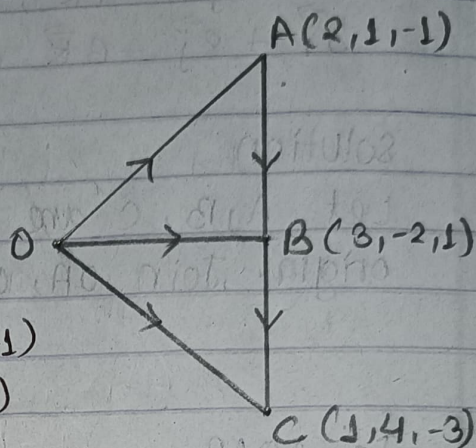 A(2,1,-1)
O
B (3,-2,1)
1)
)
C (1,4,-3)